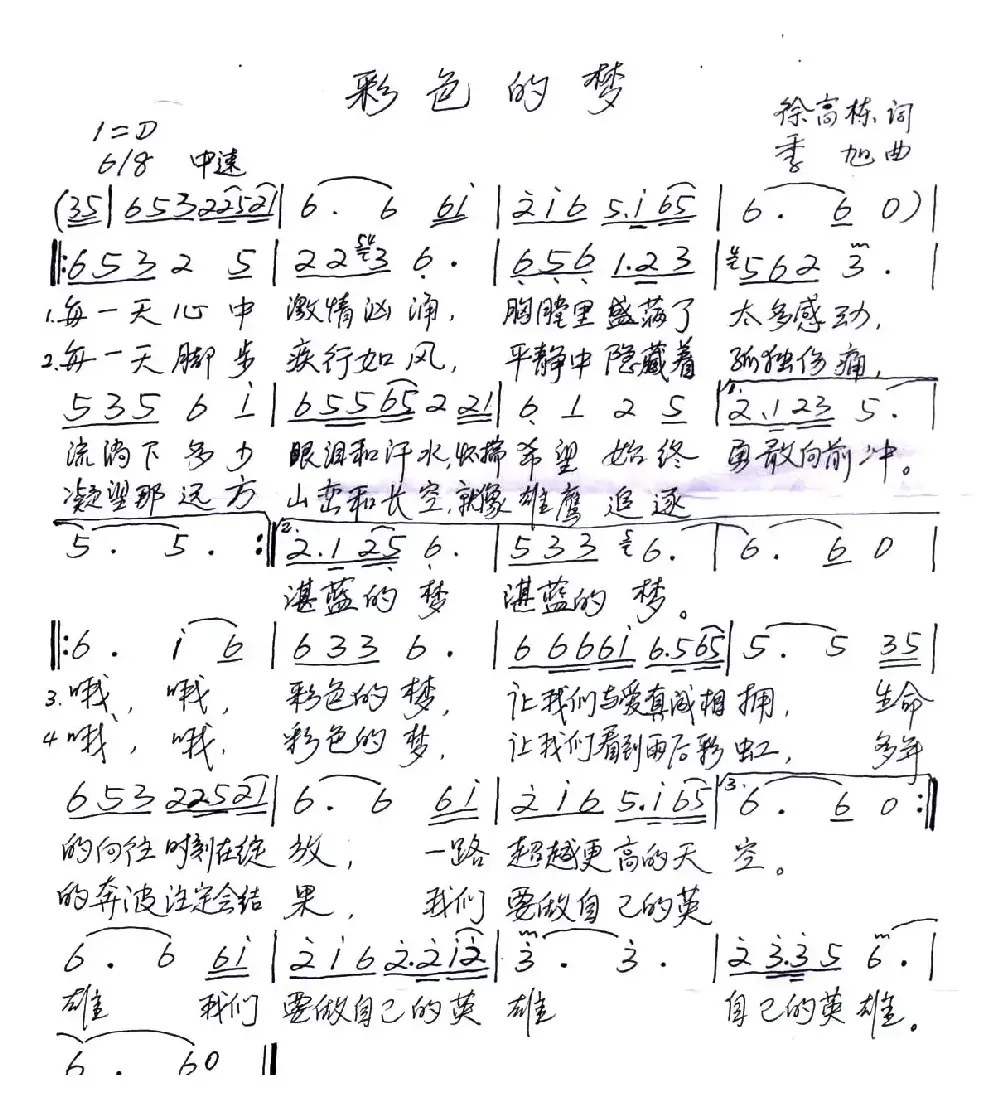 彩色的梦
1=D
徐高栋词
6/8 中速
季旭曲
(35|65322521|6. 6 61|2165.165|6. 60)|
‖:65325|22543 6.|6561.23|562 3.|
1.每一天心中 激情汹涌, 胸膛里盛满了 太多感动,
2.每一天脚步 疾行如风, 平静中隐藏着 孤独伤痛,
53561|6556 5221|6125|1.2.123 5.|
流淌下多少 眼泪和汗水,怀揣希望 始终 勇敢向前冲。
凝望那远方 山峦和长空,就像雄鹰 追逐
5. 5. :‖2.2.125 6.|533 56.|6. 60|
湛蓝的梦 湛蓝的梦。
‖:6. 16|633 6.|666616.565|5. 5 35|
3.哦, 哦, 彩色的梦, 让我们与爱真诚相拥, 生命
4.哦, 哦, 彩色的梦, 让我们看到雨后彩虹, 多年
65322521|6. 6 61|2165.165|3.6. 60:‖
的向往时刻在绽放, 一路 超越更高的天空。
的奔波注定会结果, 我们 要做自己的英
6. 6 61|2162.212|3. 3.|23.35 6.|
雄 我们 要做自己的英 雄 自己的英雄。
6. 60‖